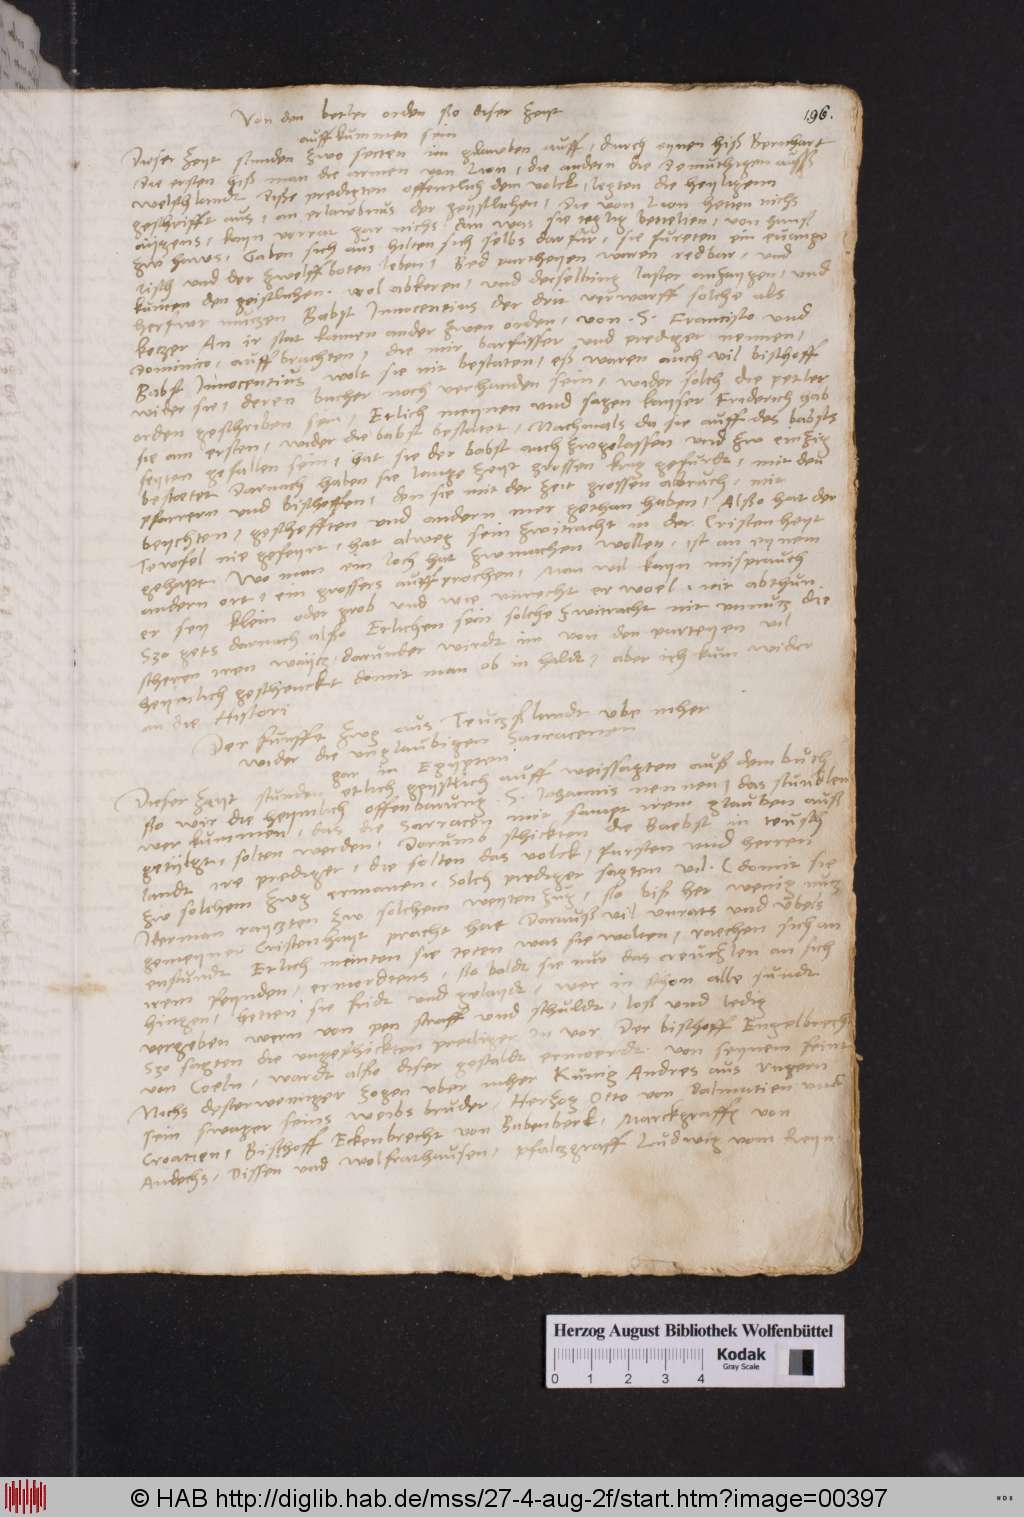 196.
Von den betler orden sso diser zeyt
auffkummen sein
Dieser zeyt stunden zwo secten im glawben auff, durch eynen hiß Bernhart
Die ersten hiß man die armen von Lion, die andern die Demuthigen auß
welschlandt Disse predigten offentlich dem volck, legten die heyligenn
geschrifft aus, an erlawbnus der geystlichen, Die von Lion hetten nichs
aygens, kayn vorrat gar nichs dan was sie teglig bettelten, von hauß
zw haws, Gaben sich aus hilten sich selbs dar fur, sie fureten ein euange
lisch und der zwelff boten leben, Bed partheyen waren redbar, und
kunten den geistlichen wol abkeren, und derselbing laster anzaygen, und
herfwr mutzen Babst Innocentius der drit verwarff solche als
ketzer An ir stat kamen ander zwen orden, von S. Francisco und
Dominico, auff brachten, die mir barfusser und prediger nennen,
Babst Innocentius wolt sie nit bestaten, eß waren auch vil bischoff
wider sie, deren bucher noch verhanden sein, wider solch die petler
orden geschriben sein, Etlich meynen und sagen kayser Friderich hab
sie am ersten, wider die babst bestatet, Nachmals da sie auff des babsts
seyten gefallen sein, hat sie der babst auch zwgelassen und zw einzig
bestetet Darnach haben sie lange zeyt grossen krig gefurdt, mit den
pfarrern und bischoffen, den sie mit der zeit grossen abbruch, mit
beychten, geschefften und andern mer gethan haben, Also hat der
Tewfel nie gefeyrt, hat alweg sein zwitracht in der Cristenheyt
gehapt Wo man ein loch hat zwmachen wollen, ist an eynem
andern ort, ein grossers auffprochen, Man wil kayn misprauch
er sey klein oder grob und wie unrecht er woel, nit abthun
Szo gets darnach also Etlichen sein solche zwitracht nit unnutz die
scheren iren waytz darunder wirdt im von den parteyen vil
heymlich geschenckt domit man ob in haldt, aber ich kum wider
an die Histori
Der funfft zwg aus Teutzschlandt ube mher
wider die unglaubigen Sarracenen
gar in Egypten
Dieser zeyt stunden etlich geystlich auff weissagten auß dem buch
sso wir die heymlich offenbarung S. Johannis nennen, das stundlen
wer kummen, das die Sarracen mit sampt irem glauben auß
getylgt, solten werden, Dorumb schickten die Baebst in teusch
landt ire prediger, die solten das volck, fursten und herren
zw solchem zwg ermanen, Solch prediger sagten vil (domit sie
Iderman raytzten zw solchem weyten zug, sso biß her wenig nutz
gemeyner Cristenhayt pracht hat Darauß vil unrats und ubels
enstundt Etlich meinten sie teten was sie wolten, raechen sich an
irem feynden, ermordtens, sso baldt sie nur das creutzlen an sich
hingen, hetten sie fridt und gelaydt, wer in schon alle sundt
vergeben wern von pen straff und schuldt, loß und ledig
Szo sagten die ungeschickten prediger in vor Der bischoff Engelbrecht
von Coeln, wardt also diser gestaldt ermoerdt von seynem feint
Nichs desterweniger zogen uber mher Kunig Andres aus Ungern
sein swager seins weibs bruder, Hertzog Otto von Dalmatien und
Croatien, Bischoff Eckenbrecht von Babenberk, Marckgraff von
Andechs, Dissen und wolfrathausen, pfaltzgraff Ludwig vom Reyn
Herzog August Bibliothek Wolfenbüttel
Kodak
Gray Scale
0 1 2 3 4
© HAB http://diglib.hab.de/mss/27-4-aug-2f/start.htm?image=00397